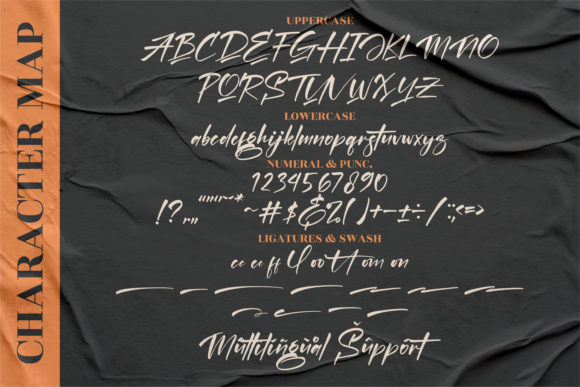 CHARACTER MAP
UPPERCASE
ABCDEFGHIJKLMNO
PQRSTUVWXYZ
LOWERCASE
abcdefghijklmnopqrstuvwxyz
NUMERAL & PUNC.
1234567890
~#$&%()+-±÷/:;<=>
LIGATURES & SWASH
Multilingual Support